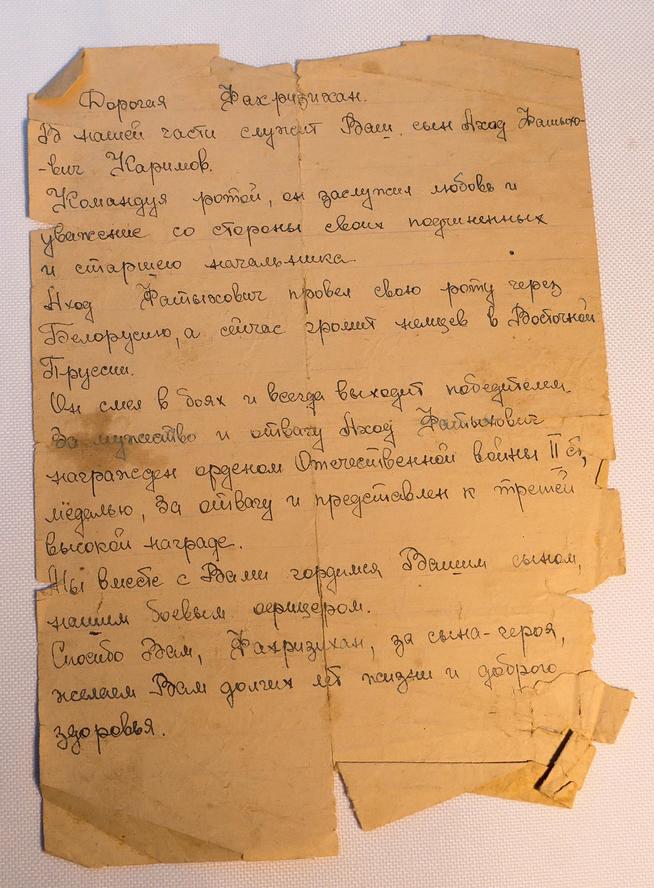 Дорогая Фахризихан.
В нашей части служит Ваш сын Аход Фатыхо-
-вич Каримов.
Командуя ротой, он заслужил любовь и
уважение со стороны своих подчиненных
и старшего начальника.
Аход Фатыхович провел свою роту через
Белорусию, а сейчас громит немцев в Восточной
Пруссии.
Он смел в боях и всегда выходит победителем.
За мужество и отвагу Аход Фатыхович
награжден орденом Отечественной войны II ст,
медалью, За отвагу и представлен к третей
высокой награде.
Мы вместе с Вами гордимся Вашим сыном,
нашим боевым офицером.
Спасибо Вам, Фахризихан, за сына-героя,
желаем Вам долгих лет жизни и доброго
здоровья.